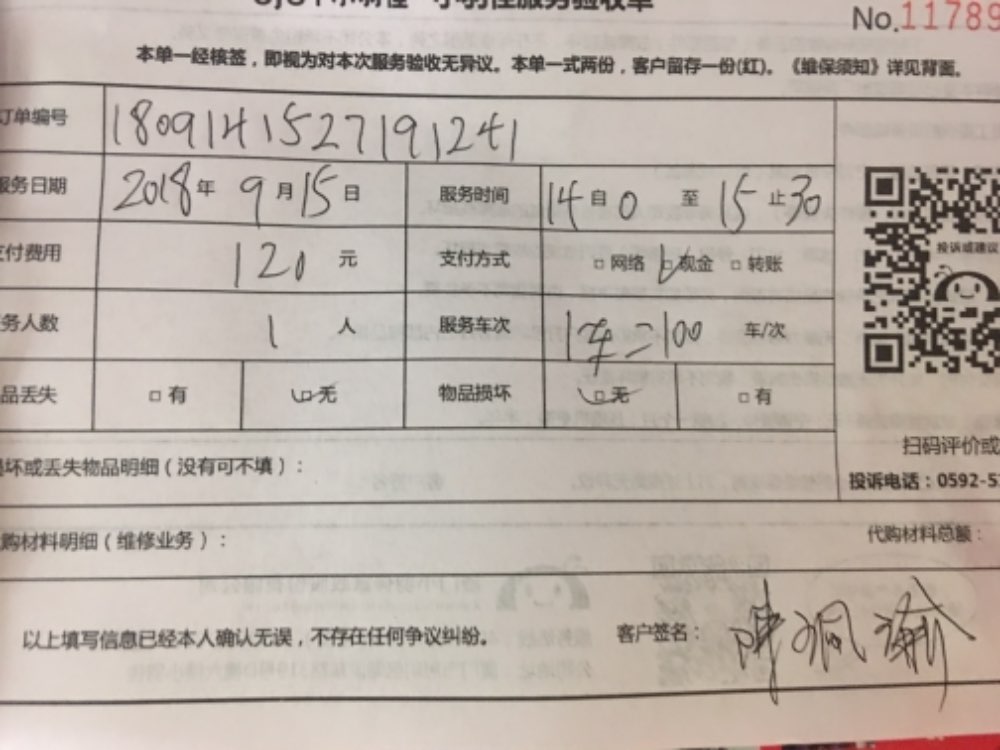 服务验收单
No.11789
本单一经核签，即视为对本次服务验收无异议。本单一式两份，客户留存一份(红)。《维保须知》详见背面。
订单编号 1809141527191241
服务日期 2018年9月15日 服务时间 14自0至15止30
支付费用 120元 支付方式 □网络 □现金 □转账
投诉或建议
务人数 1人 服务车次 1车=100 车/次
品丢失 □有 □无 物品损坏 □无 □有
扫码评价或
损坏或丢失物品明细（没有可不填）：
投诉电话：0592-5
购材料明细（维修业务）： 代购材料总额：
以上填写信息已经本人确认无误，不存在任何争议纠纷。 客户签名：